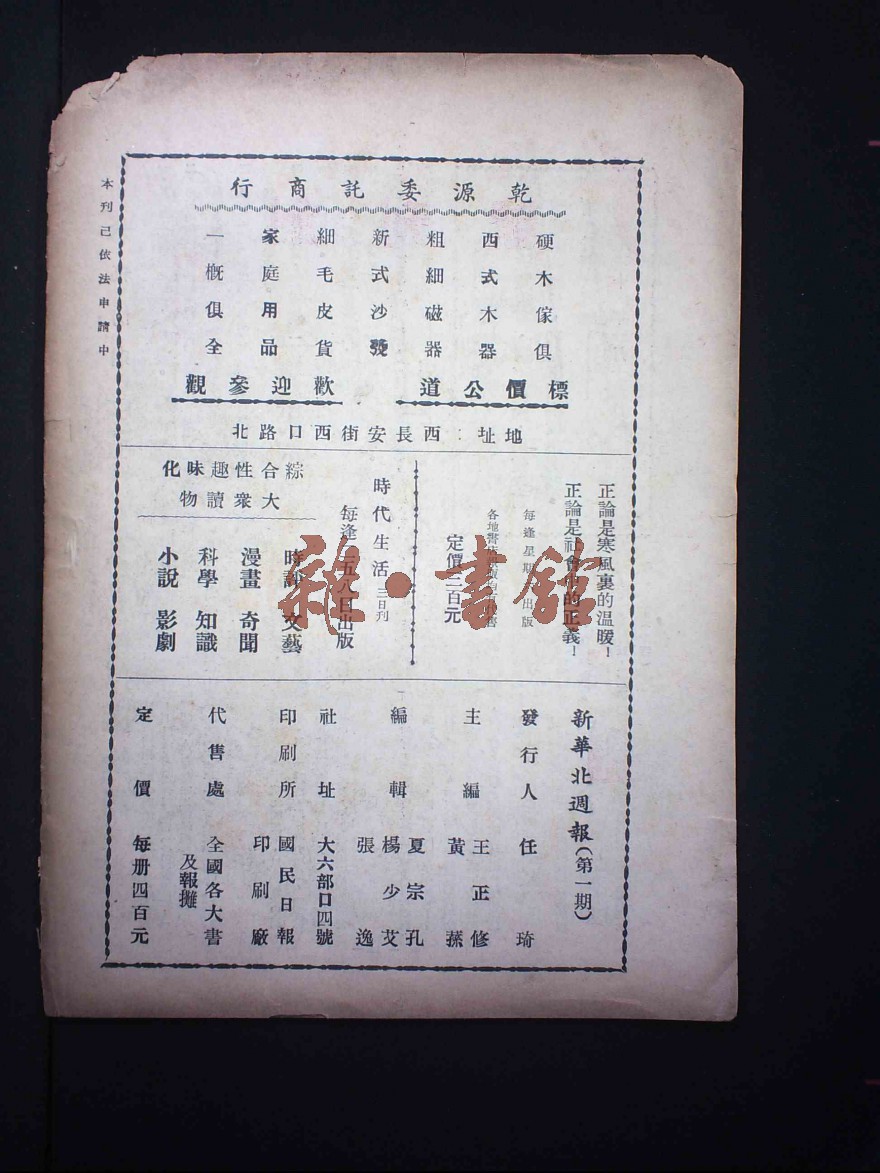 本刊已依法申請中
乾源委託商行
硬木傢俱
西式木器
粗細磁器
新式沙發
細毛皮貨
家庭用品
一概俱全
標價公道
歡迎參觀
地址:西長安街西口路北
正論是寒風裏的温暖!
正論是社會的正義!
每逢星期出版
各地書
定價三百元
時代生活三日刊
每逢二五八日出版
綜合性趣味化
大衆讀物
時評 文藝
漫畫 奇聞
科學 知識
小說 影劇
新華北週報(第一期)
發行人 任琦
主編 王正修
黃蓀
編輯 夏宗孔
楊少艾
張逸
社址 大六部口四號
印刷所 國民日報
印刷廠
代售處 全國各大書
及報攤
定價 每册四百元
雜·書館